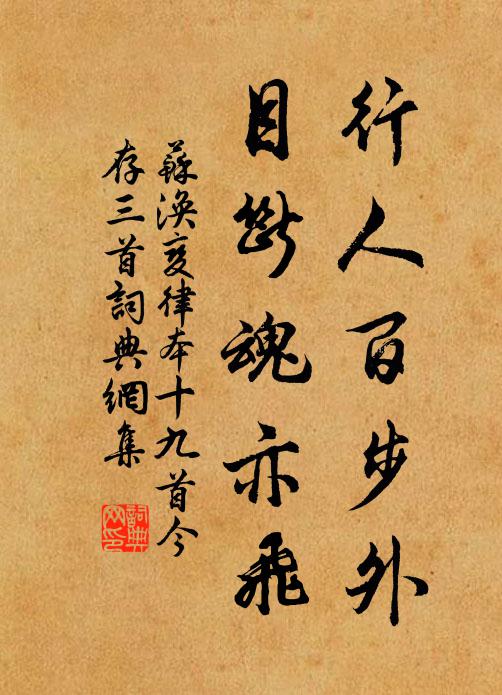 行人百步外
目斷魂亦飛
蘇渙變律本十九首今
存三首詞典網集
詞典網印